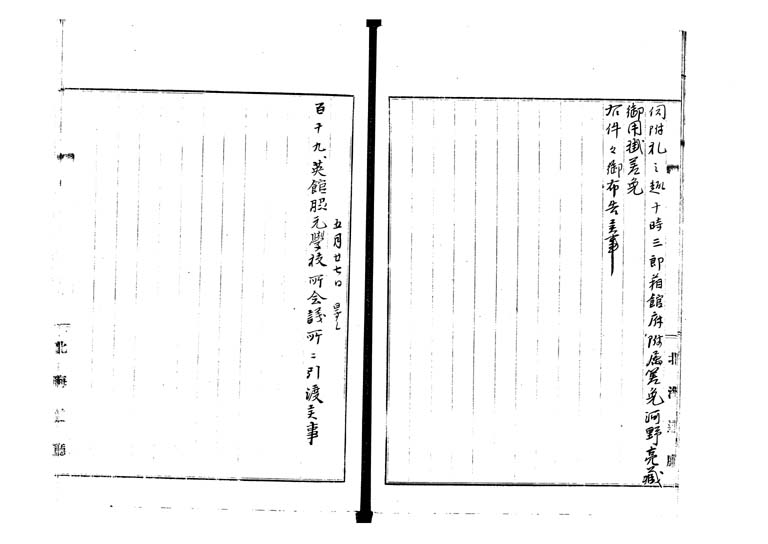 伺附札之趣十時三郎箱館府附属差免河野亮蔵
御用掛差免
右件々御布告之事
北海道庁
五月廿七日
百十九、英館脇元學校所会議所ニ引渡之事
北海道廳